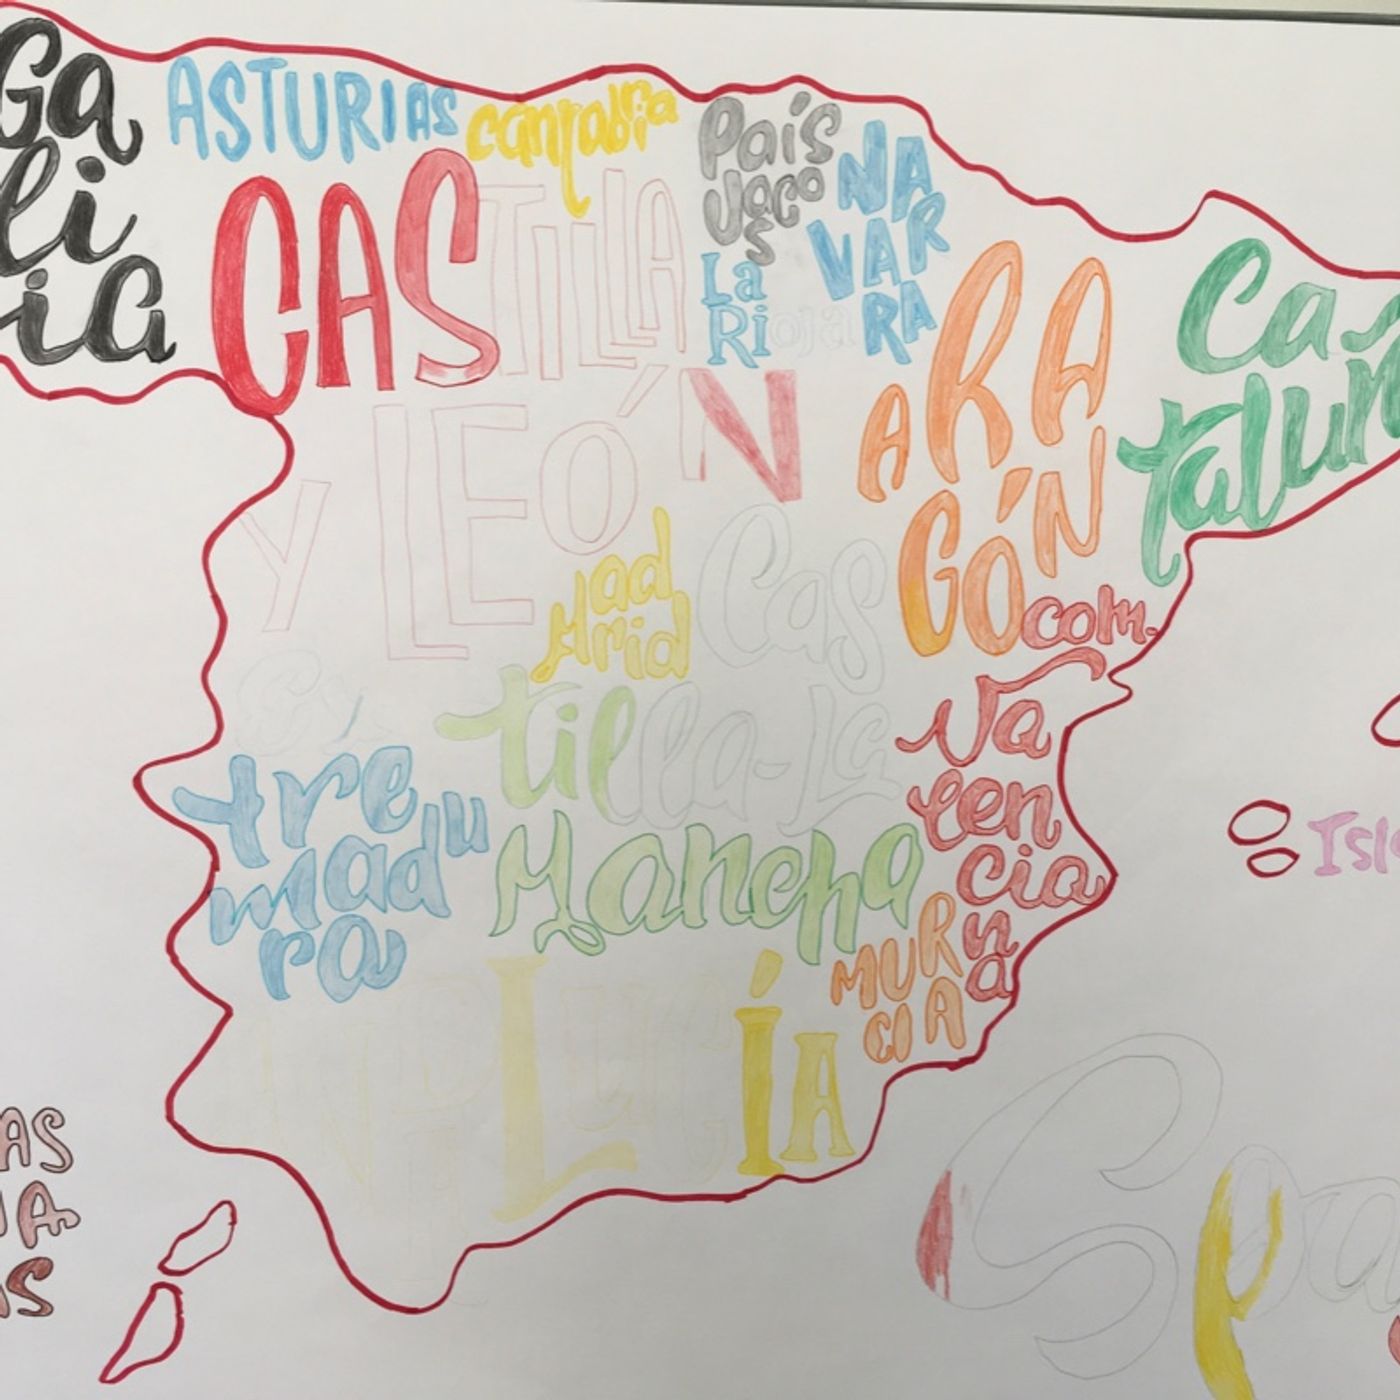 Ga
li
ia
ASTURIAS
cantabria
País
Vasco
NA
VAR
RA
La
Rioja
CASTILLA
Y LEÓN
ARA
GÓN
Ca
taluñ
Madrid
Cas
tilla-La
Mancha
Ex
tre
madu
ra
com.
Va
len
cia
na
MUR
CIA
ANDALUCÍA
Isl
AS
IA
AS
Spa